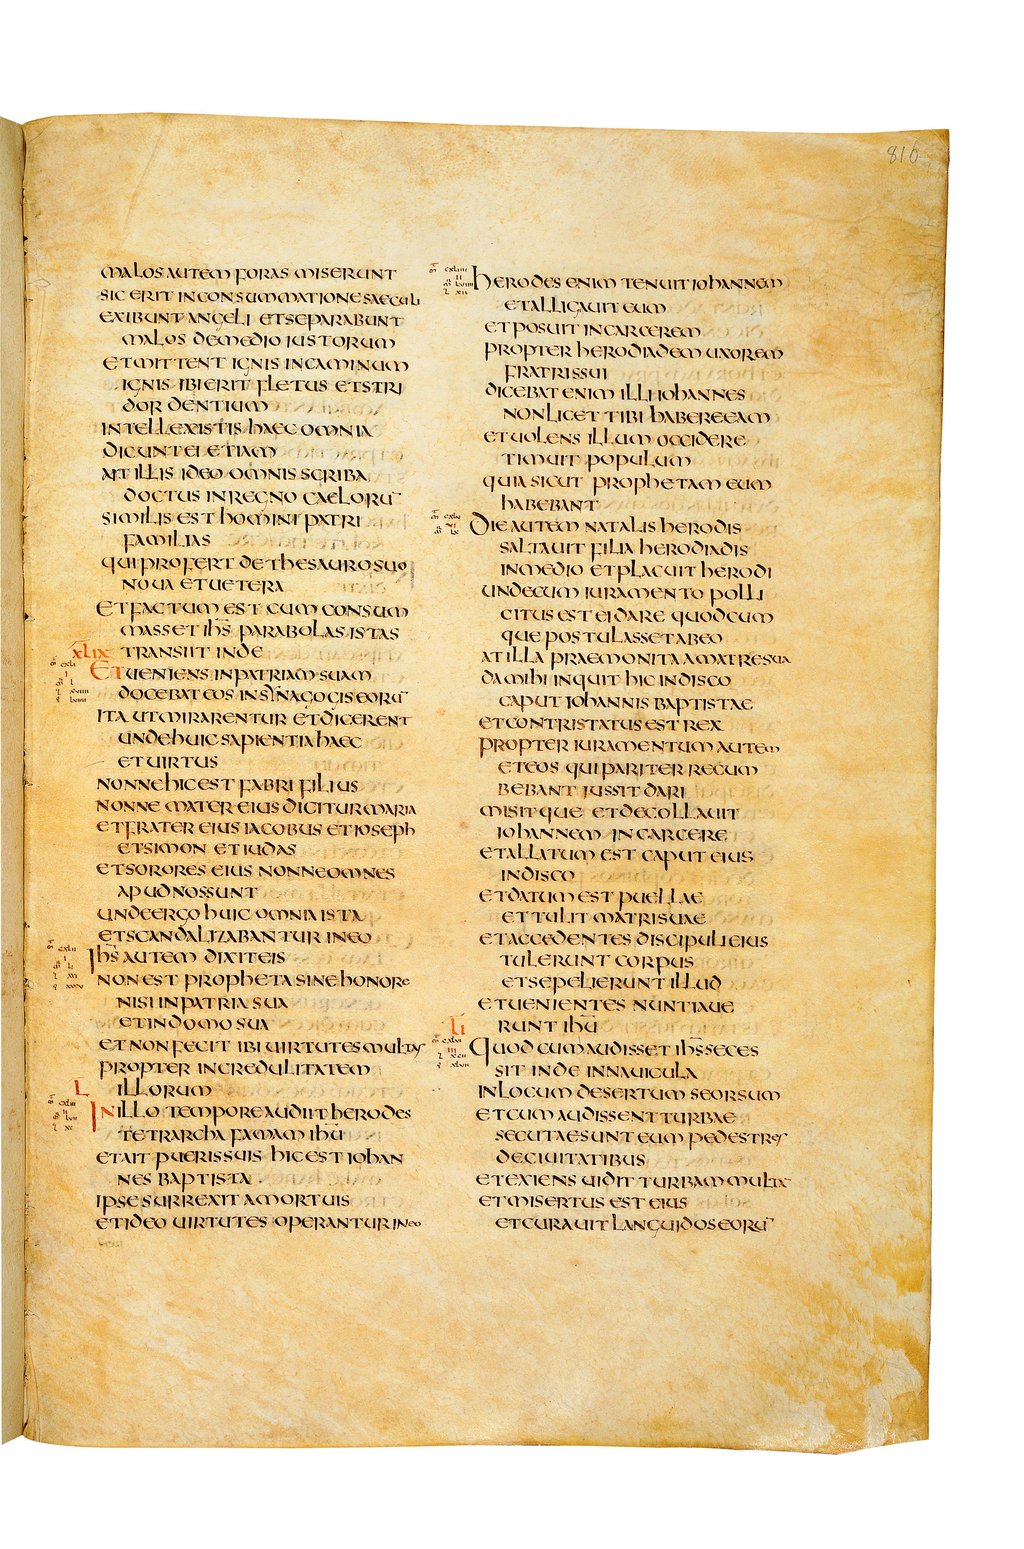 816
malos autem foras miserunt
sic erit in consummatione saeculi
exibunt angeli et separabunt
malos de medio iustorum
et mittent ignis in caminum
ignis ibi erit fletus et stri
dor dentium
intellexistis haec omnia
dicunt ei etiam
ait illis ideo omnis scriba
doctus in regno caeloru¯
similis est homini patri
familias
qui profert de thesauro suo
noua et uetera
et factum est cum consum
masset ih̅s parabolas istas
xlix transiit inde
et ueniens in patriam suam
docebat eos in synagogis eoru¯
ita ut mirarentur et dicerent
unde huic sapientia haec
et uirtus
nonne hic est fabri filius
nonne mater eius dicitur maria
et frater eius iacobus et ioseph
et simon et iudas
et sorores eius nonne omnes
apud nos sunt
unde ergo huic omnia ista
et scandalizabantur in eo
ih̅s autem dixit eis
non est propheta sine honore
nisi in patria sua
et in domo sua
et non fecit ibi uirtutes multas
propter incredulitatem
l illorum
in illo tempore audiit herodes
tetrarcha famam ih̅u
et ait pueris suis hic est iohan
nes baptista
ipse surrexit a mortuis
et ideo uirtutes operantur in eo
herodes enim tenuit iohannem
et alligauit eum
et posuit in carcerem
propter herodiadem uxorem
fratris sui
dicebat enim illi iohannes
non licet tibi habere eam
et uolens illum occidere
timuit populum
quia sicut prophetam eum
habebant
die autem natalis herodis
saltauit filia herodiadis
in medio et placuit herodi
unde cum iuramento polli
citus est ei dare quodcum
que postulasset ab eo
at illa praemonita a matre sua
da mihi inquit hic in disco
caput iohannis baptistae
et contristatus est rex
propter iuramentum autem
et eos qui pariter recum
bebant iussit dari
misitque et decollauit
iohannem in carcere
et allatum est caput eius
in disco
et datum est puellae
et tulit matri suae
et accedentes discipuli eius
tulerunt corpus
et sepelierunt illud
et uenientes nuntiaue
li runt ih̅u
quod cum audisset ih̅s seces
sit inde in nauicula
in locum desertum seorsum
et cum audissent turbae
secutae sunt eum pedestres
de ciuitatibus
et exiens uidit turbam multa
et misertus est eius
et curauit languidos eoru¯